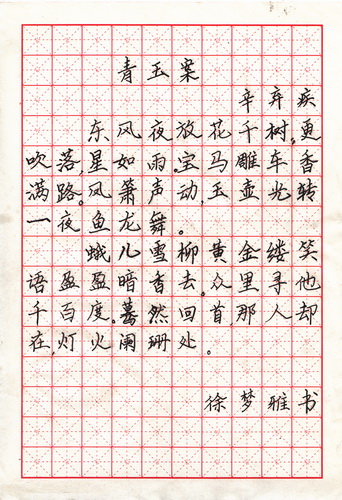 青玉案
辛弃疾
东风夜放花千树,更
吹落,星如雨。宝马雕车香
满路。风箫声动,玉壶光转
一夜鱼龙舞。
蛾儿雪柳黄金缕笑
语盈盈暗香去。众里寻他
千百度。蓦然回首,那人却
在,灯火阑珊处。
徐梦雅书